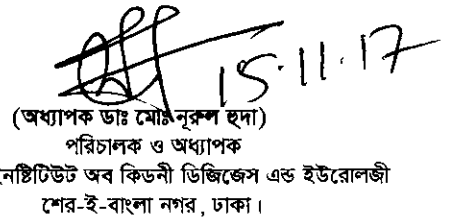 15.11.17
(অধ্যাপক ডাঃ মোঃ নূরুল হুদা)
পরিচালক ও অধ্যাপক
নষ্টিটিউট অব কিডনী ডিজিজেস এন্ড ইউরোলজী
শের-ই-বাংলা নগর, ঢাকা।